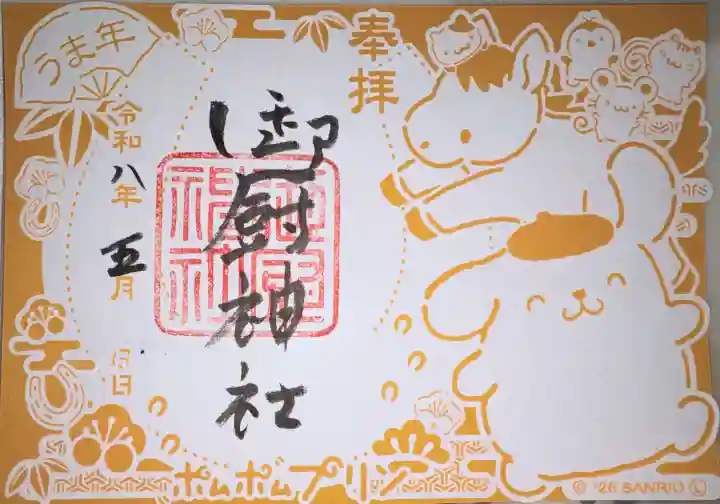 奉拝
御厨神社
うま年
令和八年
五月
日
ポムポムプリン
© '26 SANRIO Ⓛ